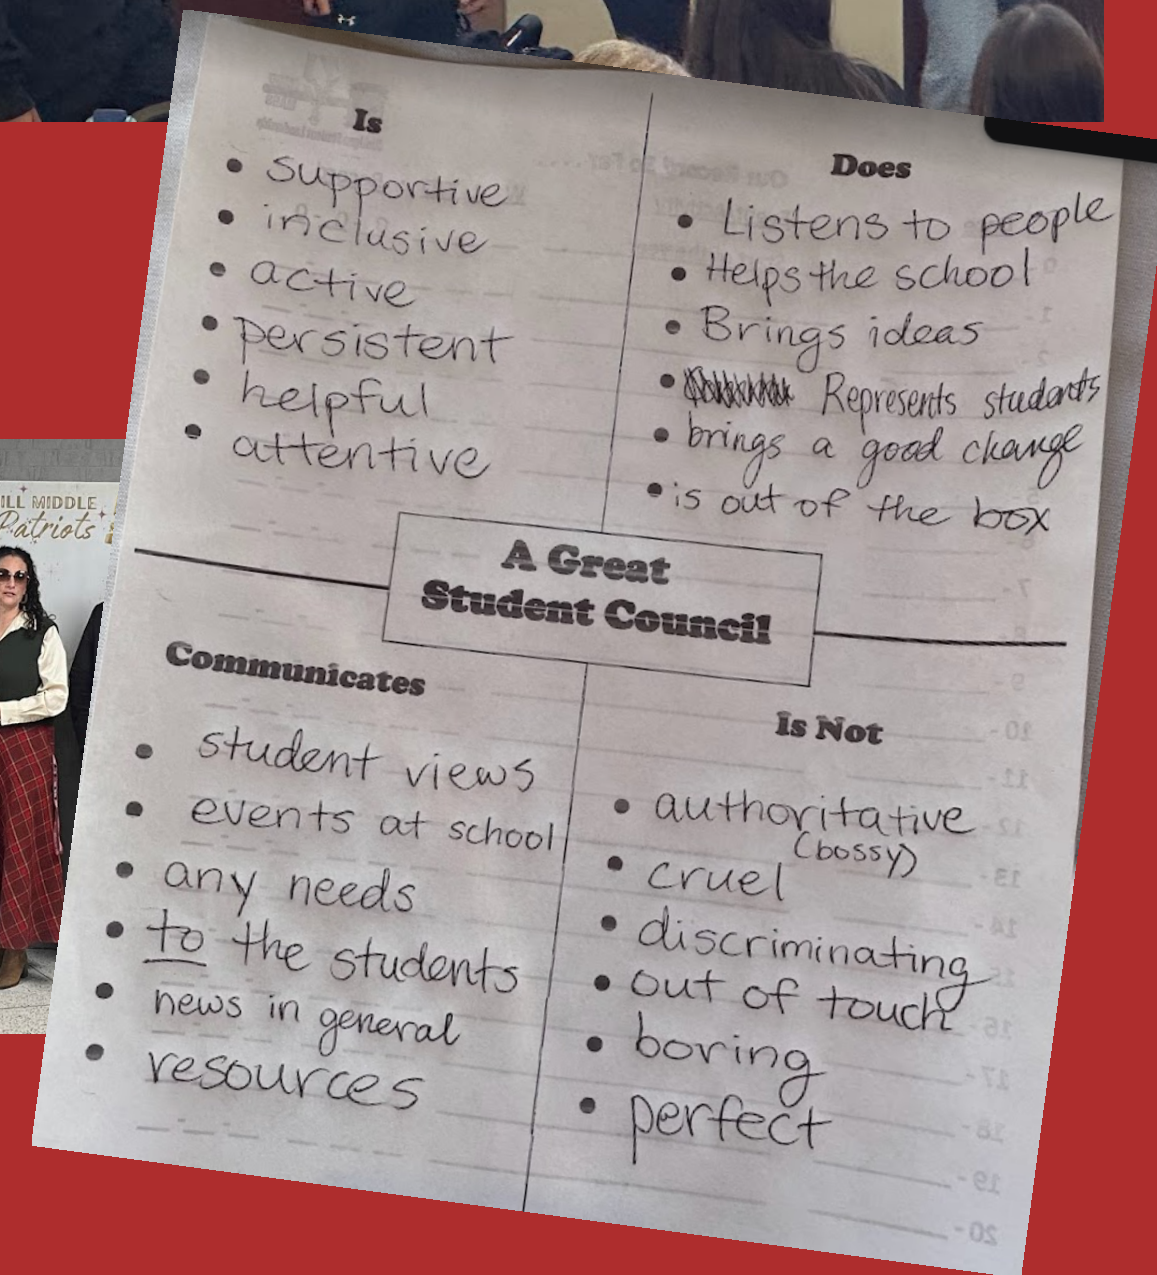 Is
• supportive
• inclusive
• active
• persistent
• helpful
• attentive
Does
• Listens to people
• Helps the school
• Brings ideas
• Represents students
• brings a good change
• is out of the box
A Great
Student Council
Communicates
• student views
• events at school
• any needs
• to the students
• news in general
• resources
Is Not
• authoritative
(bossy)
• cruel
• discriminating
• out of touch
• boring
• perfect
ILL MIDDLE
Patriots
7 -
8 -
9 -
10 -
11 -
12 -
13 -
14 -
15 -
16 -
17 -
18 -
19 -
20 -